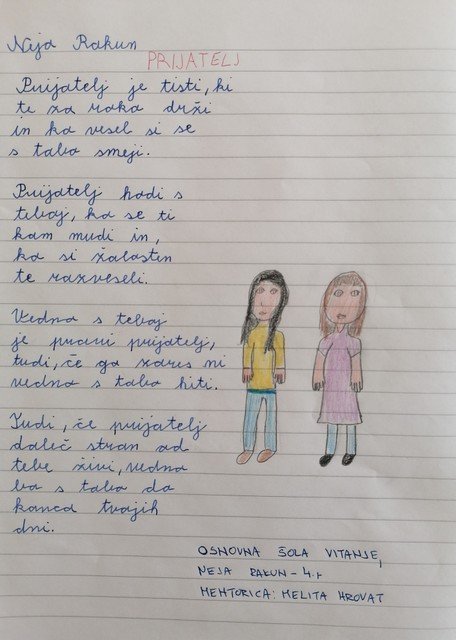 Neja Rakun
PRIJATELJ
Prijatelj je tisti, ki
te za roko drži
in ko vesel si se
s tabo smeji.
Prijatelj hodi s
teboj, ko se ti
kam mudi in,
ko si žalosten
te razveseli.
Vedno s teboj
je pravi prijatelj,
tudi, če ga zares ni
vedno s tabo hiti.
Tudi, če prijatelj
daleč stran od
tebe živi, vedno
bo s tabo do
konca tvojih
dni.
OSNOVNA ŠOLA VITANJE,
NEJA RAKUN - 4. r
MENTORICA: MELITA HROVAT